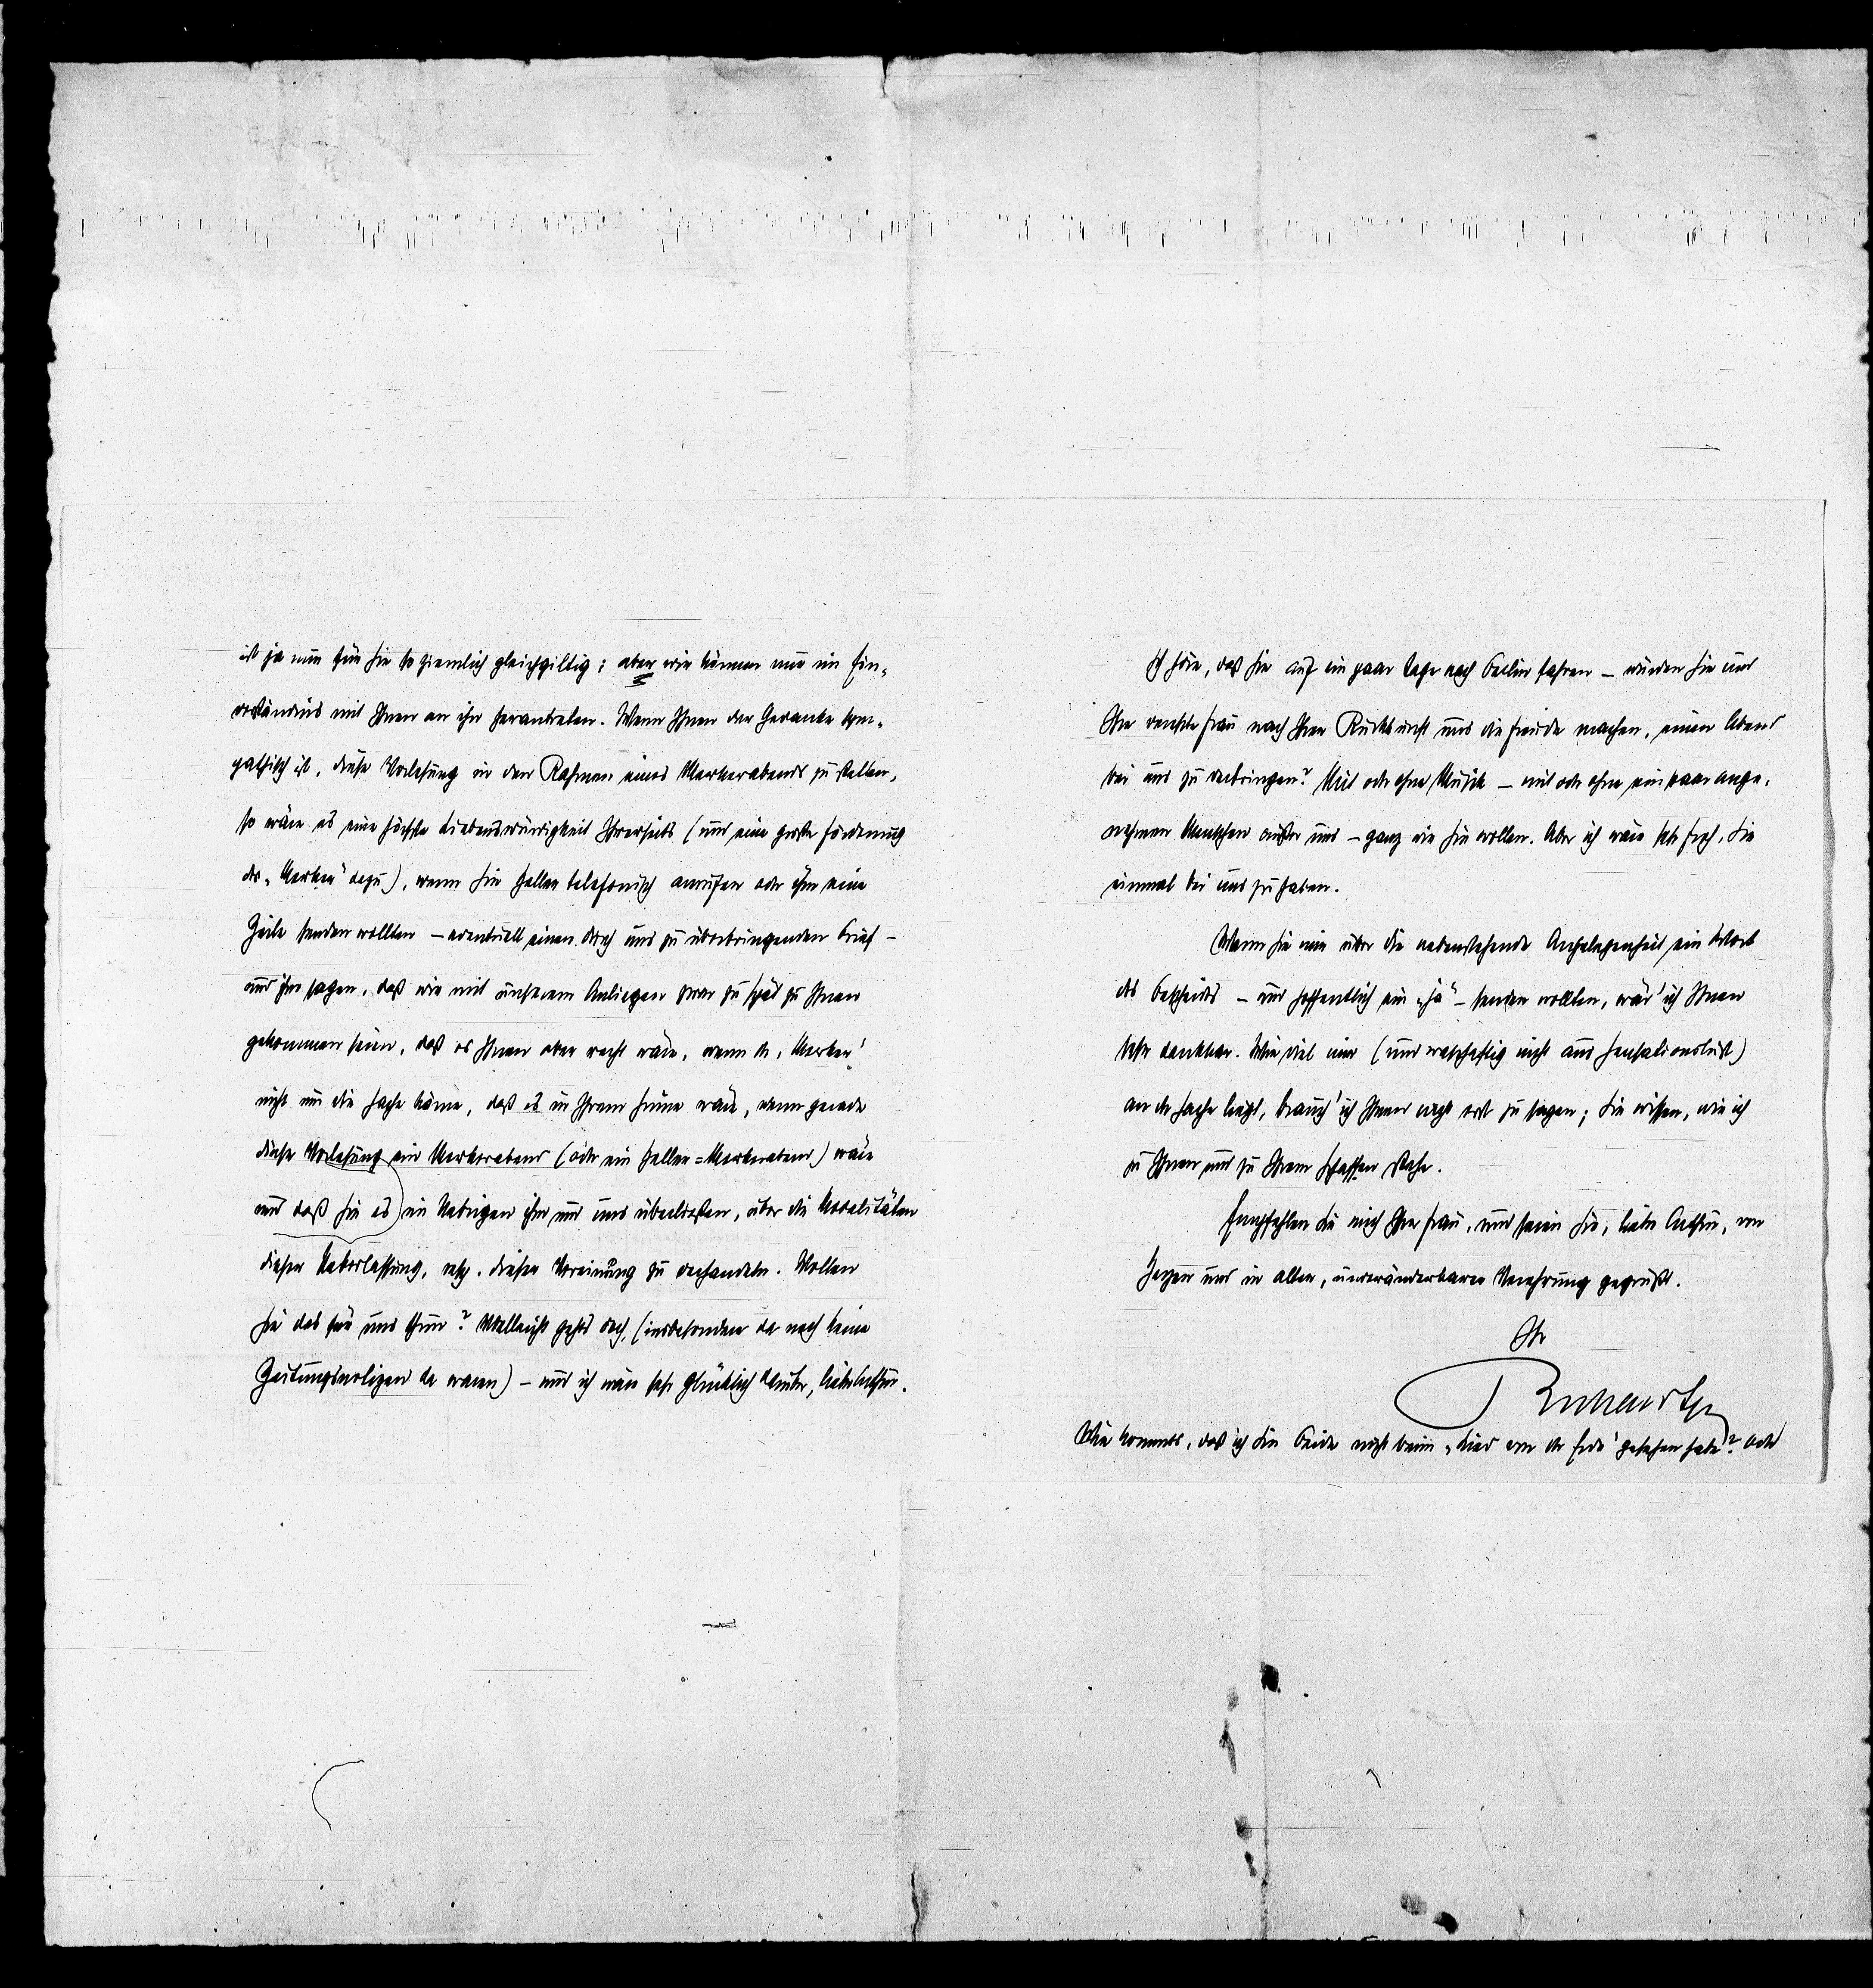 ist ja nun für Sie so ziemlich gleichgiltig; aber wir können nur im Ein-
verständnis mit Ihnen an ihn herantreten. Wenn Ihnen der Gedanke sym-
pathisch ist, diese Vorlesung in den Rahmen eines Merkerabends zu stellen,
so wäre es eine höchste Liebenswürdigkeit Ihrerseits (und eine große Förderung
des „Merker“ dazu), wenn Sie Heller telefonisch anrufen oder ihm eine
Zeile senden wollten – eventuell einen durch uns zu überbringenden Brief –
und ihm sagen, daß wir mit unserem Anliegen zwar zu spät zu Ihnen
gekommen seien, daß es Ihnen aber recht wäre, wenn der „Merker“
nicht um die Sache käme, daß es in Ihrem Sinne wäre, wenn gerade
diese Vorlesung ein Merkerabend (oder ein Heller=Merkerabend) wäre
und daß Sie es im Uebrigen ihm und uns überließen, über die Modalitäten
dieser Ueberlassung, resp. dieser Vereinung zu verhandeln. Wollen
Sie das für uns thun? Vielleicht gehts doch, (insbesondere da noch keine
Zeitungsnotizen da waren) – und ich wäre sehr glücklich darüber, lieber Arthur.
Ich höre, daß Sie auf ein paar Tage nach Berlin fahren – würden Sie und
Ihre verehrte Frau nach Ihrer Rückkunft uns die Freude machen, einen Abend
bei uns zu verbringen? Mit oder ohne Musik – mit oder ohne ein paar ange-
nehmen Menschen außer uns – ganz wie Sie wollen. Aber ich wäre sehr froh, Sie
einmal bei uns zu haben.
Wenn Sie mir über die nebenstehende Angelegenheit ein Wort
des Bescheides – und hoffentlich ein „ja“ – senden wollten, wär' ich Ihnen
sehr dankbar. Wie viel mir (und wahrhaftig nicht aus Sensationslust)
an der Sache liegt, brauch' ich Ihnen nicht erst zu sagen; Sie wissen, wie ich
zu Ihnen und zu Ihrem Schaffen stehe.
Empfehlen Sie mich Ihrer Frau, und seien Sie, lieber Arthur, von
Herzen und in alter, unveränderbarer Verehrung gegrüßt.
Ihr
Wie kommts, daß ich Sie Beide nicht beim „Lied von der Erde“ gesehen habe? Oder